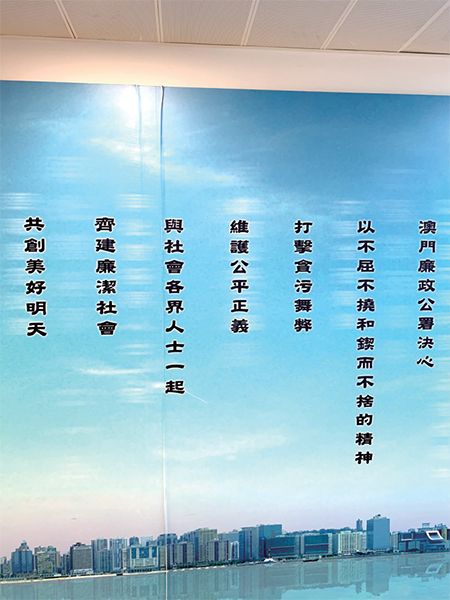 澳門廉政公署決心
以不屈不撓和鍥而不捨的精神
打擊貪污舞弊
維護公平正義
與社會各界人士一起
齊建廉潔社會
共創美好明天